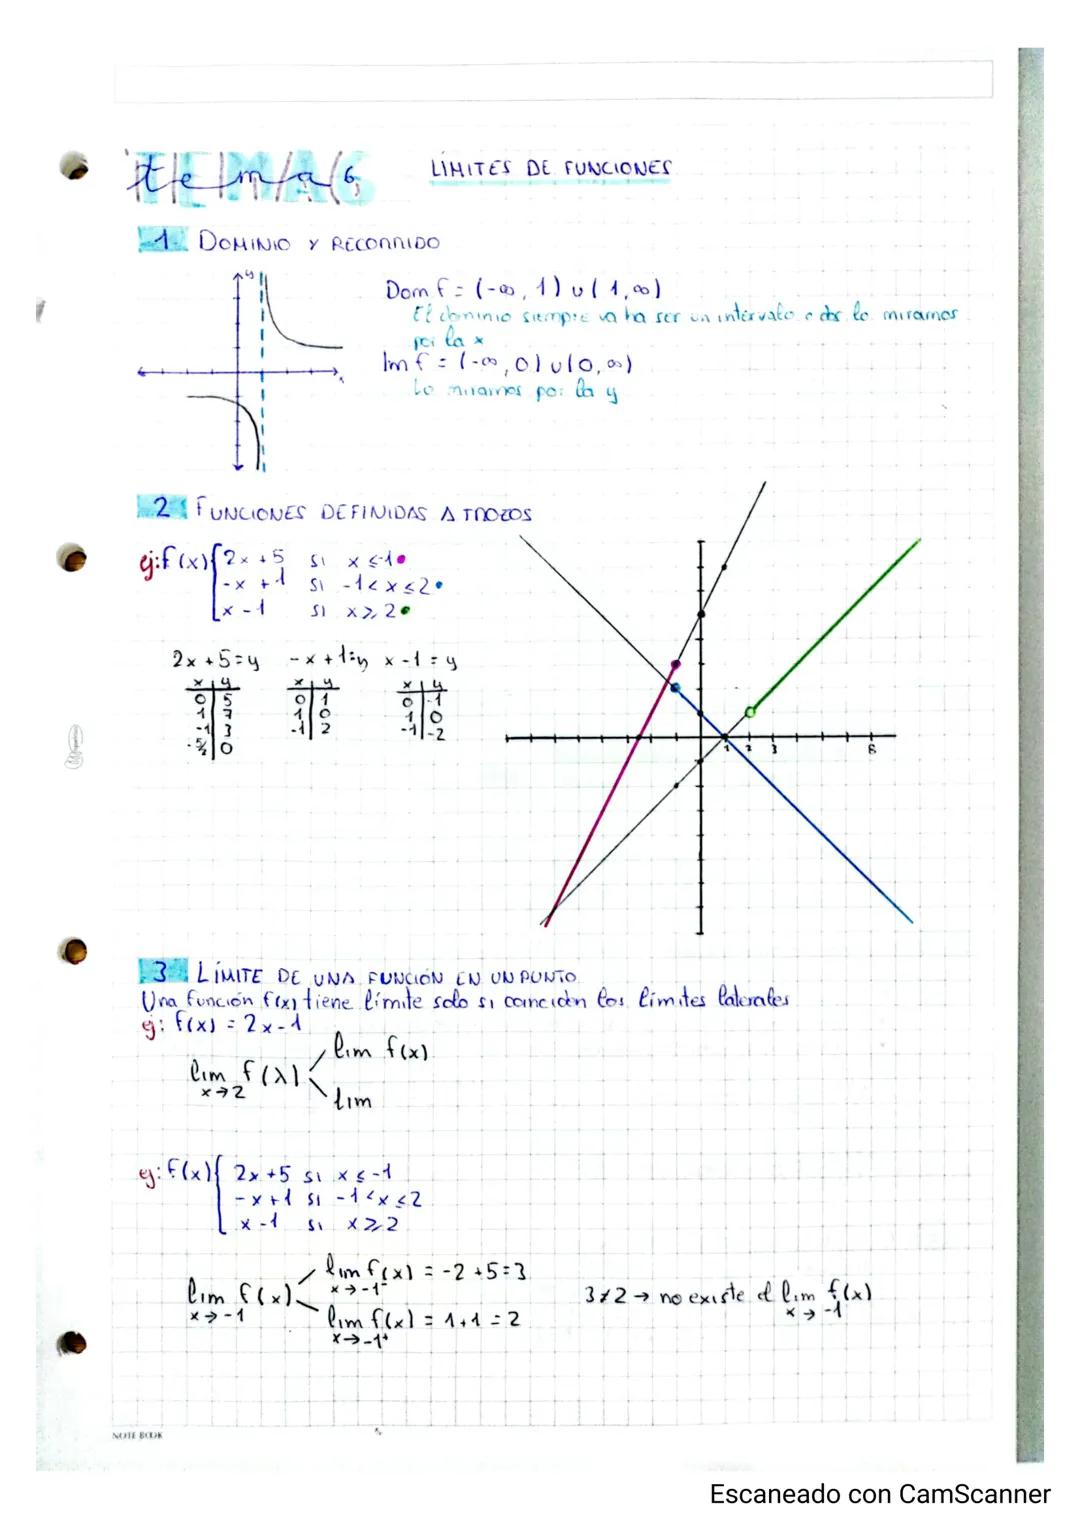 tema 6
LÍMITES DE FUNCIONES
1. DOMINIO Y RECORRIDO
y
x
Dom f = (-∞, 1) ∪ (1, ∞)
El dominio siempre va ha ser un intervalo o dos lo miramos
por la x
Im f = (-∞, 0) ∪ (0, ∞)
Lo miramos por la y
2 FUNCIONES DEFINIDAS A TROZOS
ej: f(x) { 2x + 5 si x ≤ -1
-x + 1 si -1 < x ≤ 2
x - 1 si x ≥ 2
2x + 5 = y   -x + 1 = y   x - 1 = y
x | y   x | y   x | y
0 | 5   0 | 1   0 | -1
1 | 7   1 | 0   1 | 0
-1 | 3   -1 | 2   -1 | -2
-5/2 | 0
1 2 3
3 LÍMITE DE UNA FUNCIÓN EN UN PUNTO
Una función f(x) tiene límite solo si coinciden los límites laterales
ej: f(x) = 2x - 1
lim f(x)
lim f(x)
x→2
lim
ej: f(x) { 2x + 5 si x ≤ -1
-x + 1 si -1 < x ≤ 2
x - 1 si x ≥ 2
lim f(x) = -2 + 5 = 3
x→-1⁻
lim f(x)
x→-1
lim f(x) = 1 + 1 = 2
x→-1⁺
3 ≠ 2 → no existe el lim f(x)
x→-1
NOTE BOOK
Escaneado con CamScanner